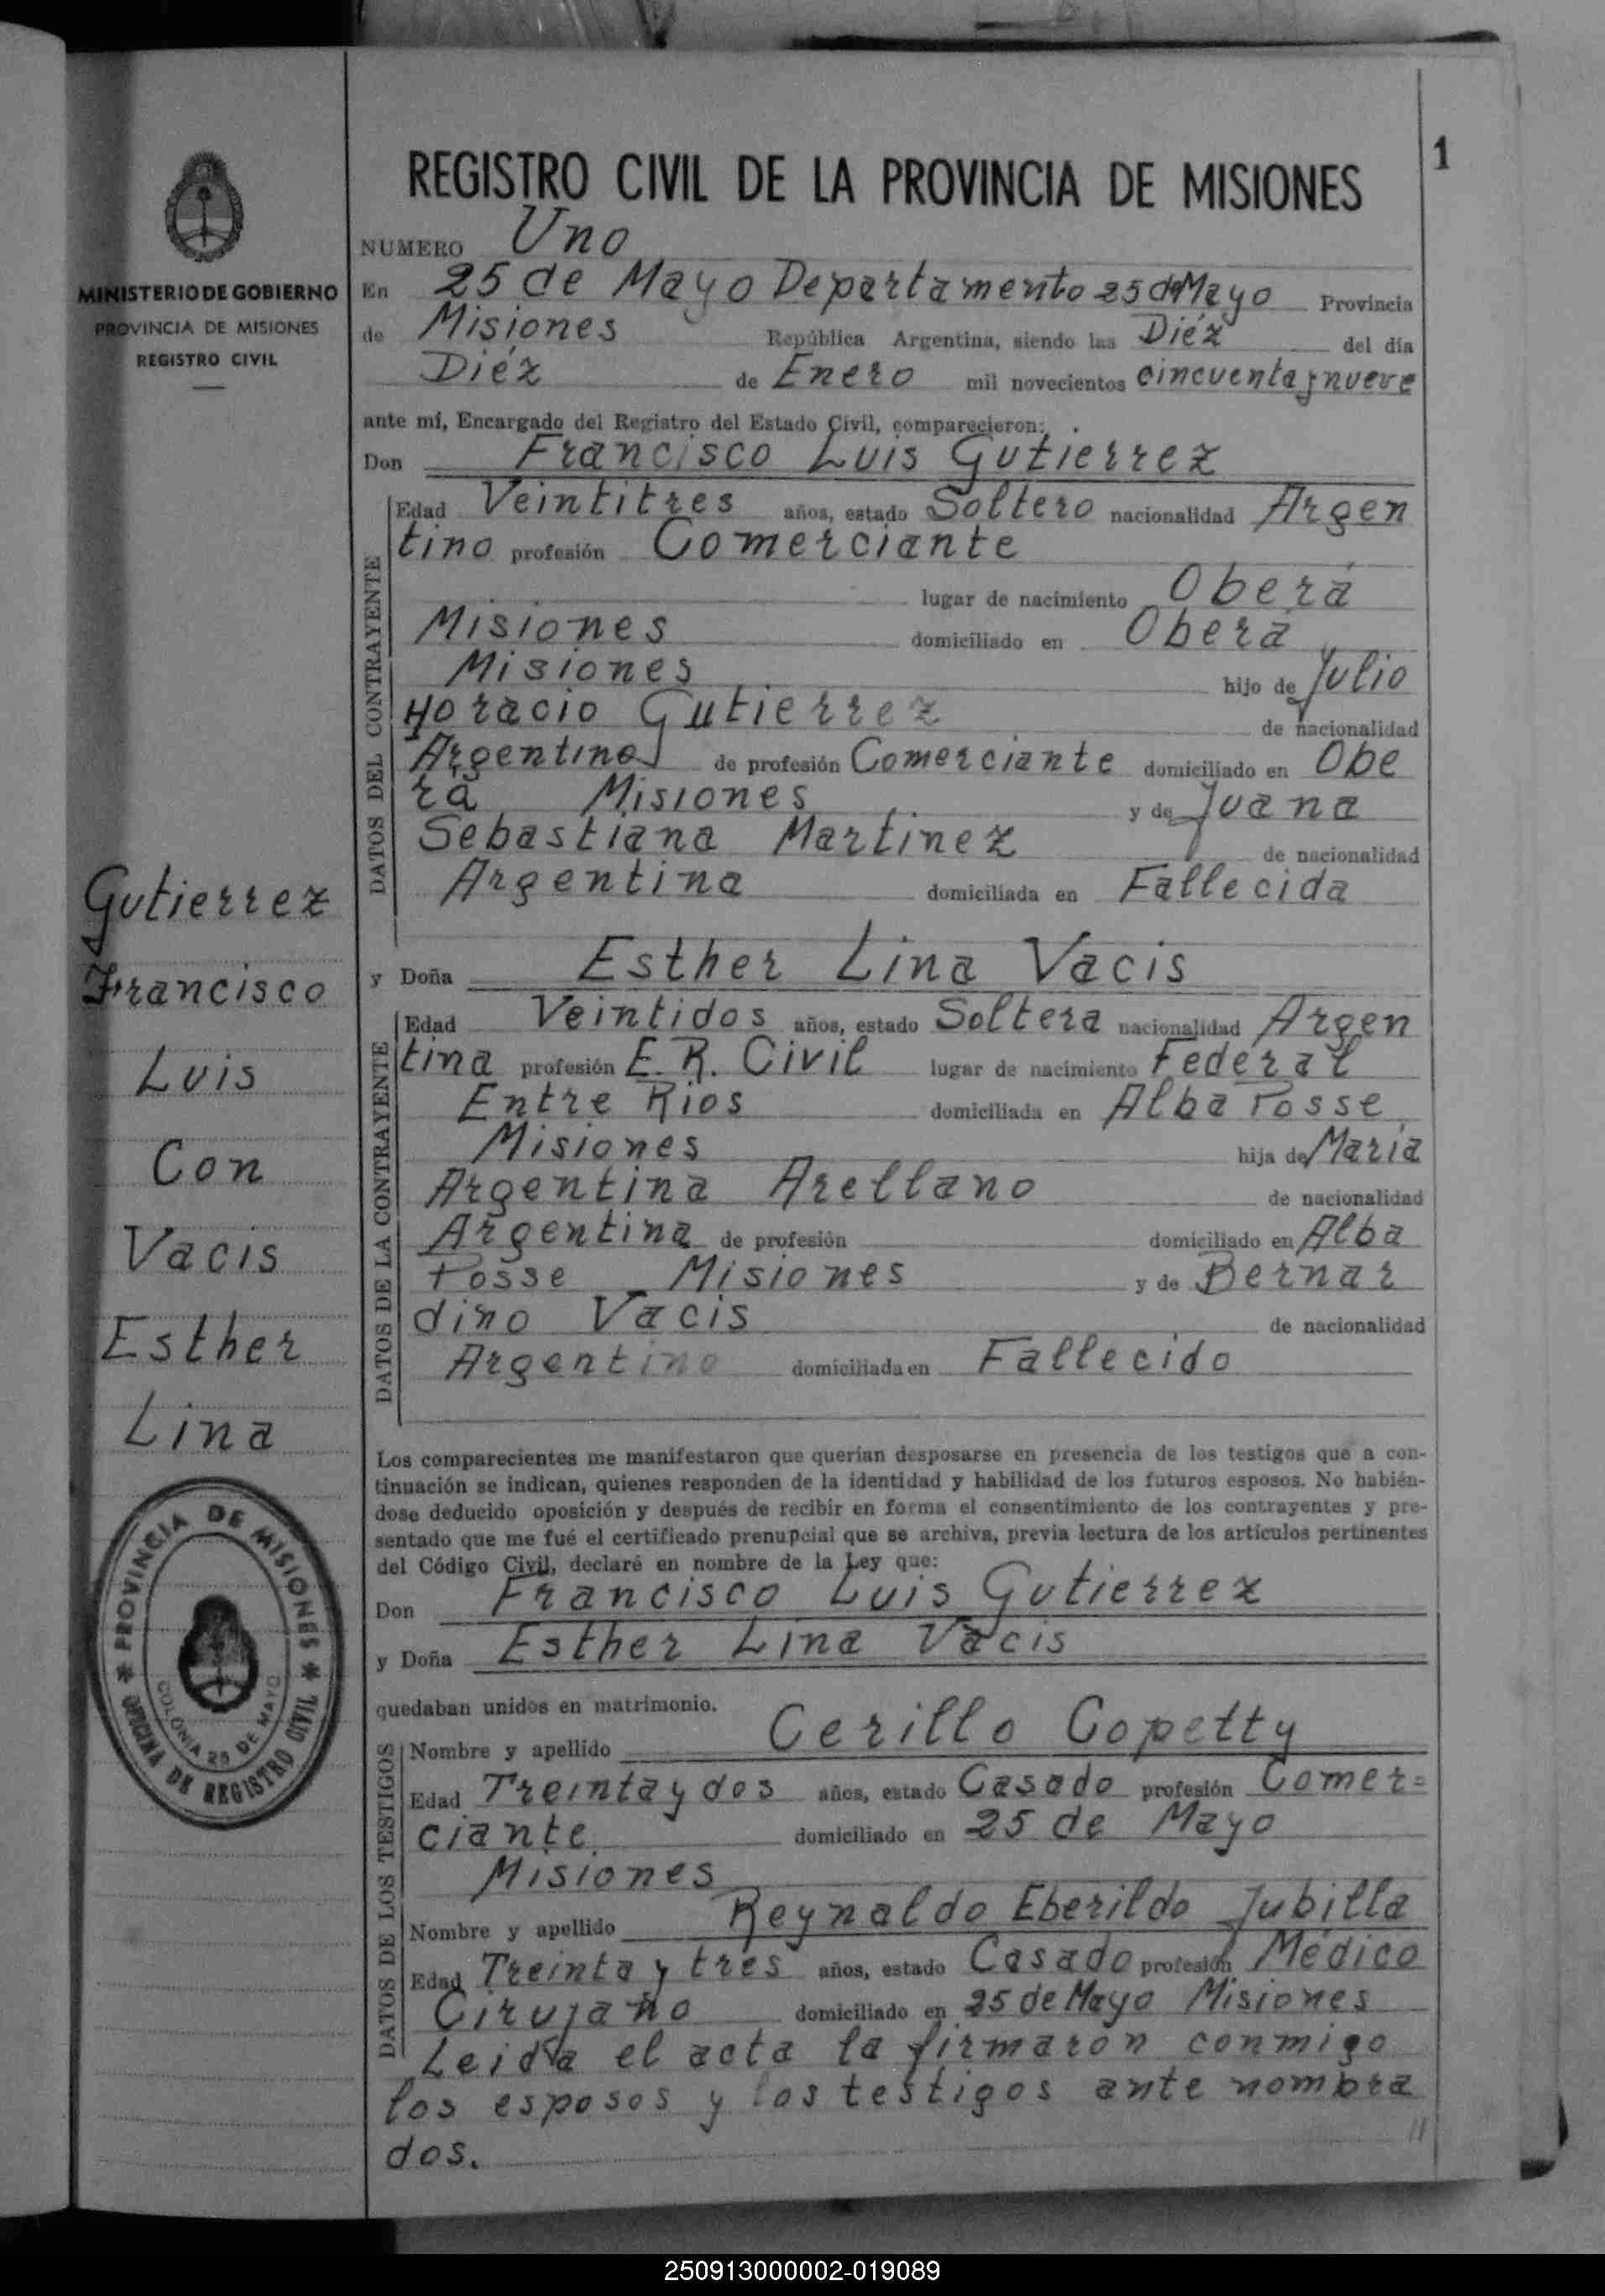 1
REGISTRO CIVIL DE LA PROVINCIA DE MISIONES
MINISTERIO DE GOBIERNO
PROVINCIA DE MISIONES
REGISTRO CIVIL
NUMERO Uno
En 25 de Mayo Departamento 25 de Mayo Provincia
de Misiones República Argentina, siendo las Diéz del día
Diéz de Enero mil novecientos cincuenta y nueve
ante mí, Encargado del Registro del Estado Civil, comparecieron:
Don Francisco Luis Gutierrez
DATOS DEL CONTRAYENTE
Edad Veintitres años, estado Soltero nacionalidad Argen
tino profesión Comerciante
lugar de nacimiento Oberá
Misiones domiciliado en Oberá
Misiones hijo de Julio
Horacio Gutierrez de nacionalidad
Argentino de profesión Comerciante domiciliado en Obe
rá Misiones y de Juana
Sebastiana Martinez de nacionalidad
Argentina domiciliada en Fallecida
y Doña Esther Lina Vacis
DATOS DE LA CONTRAYENTE
Edad Veintidos años, estado Soltera nacionalidad Argen
tina profesión E. R. Civil lugar de nacimiento Federal
Entre Rios domiciliada en Alba Posse
Misiones hija de Maria
Argentina Arellano de nacionalidad
Argentina de profesión domiciliado en Alba
Posse Misiones y de Bernar
dino Vacis de nacionalidad
Argentino domiciliada en Fallecido
Los comparecientes me manifestaron que querían desposarse en presencia de los testigos que a con-
tinuación se indican, quienes responden de la identidad y habilidad de los futuros esposos. No habién-
dose deducido oposición y después de recibir en forma el consentimiento de los contrayentes y pre-
sentado que me fué el certificado prenupcial que se archiva, previa lectura de los artículos pertinentes
del Código Civil, declaré en nombre de la Ley que:
Don Francisco Luis Gutierrez
y Doña Esther Lina Vacis
quedaban unidos en matrimonio.
DATOS DE LOS TESTIGOS
Nombre y apellido Cerillo Copetty
Edad Treinta y dos años, estado Casado profesión Comer=
ciante domiciliado en 25 de Mayo
Misiones
Nombre y apellido Reynaldo Eberildo Jubilla
Edad Treinta y tres años, estado Casado profesión Médico
Cirujano domiciliado en 25 de Mayo Misiones
Leida el acta la firmaron conmigo
los esposos y los testigos ante nombra
dos.
Gutierrez
Francisco
Luis
Con
Vacis
Esther
Lina
PROVINCIA DE MISIONES
OFICINA DE REGISTRO CIVIL
COLONIA 25 DE MAYO
250913000002-019089